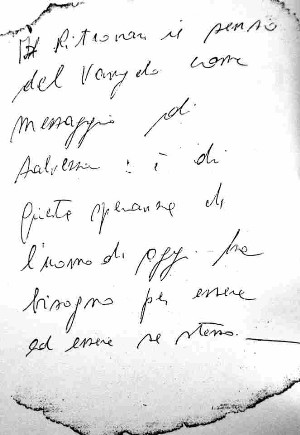 Ritrovare il senso
del Vangelo come
messaggio di
salvezza: è di
questa speranza che
l'uomo di oggi ha
bisogno per essere
ed essere se stesso.